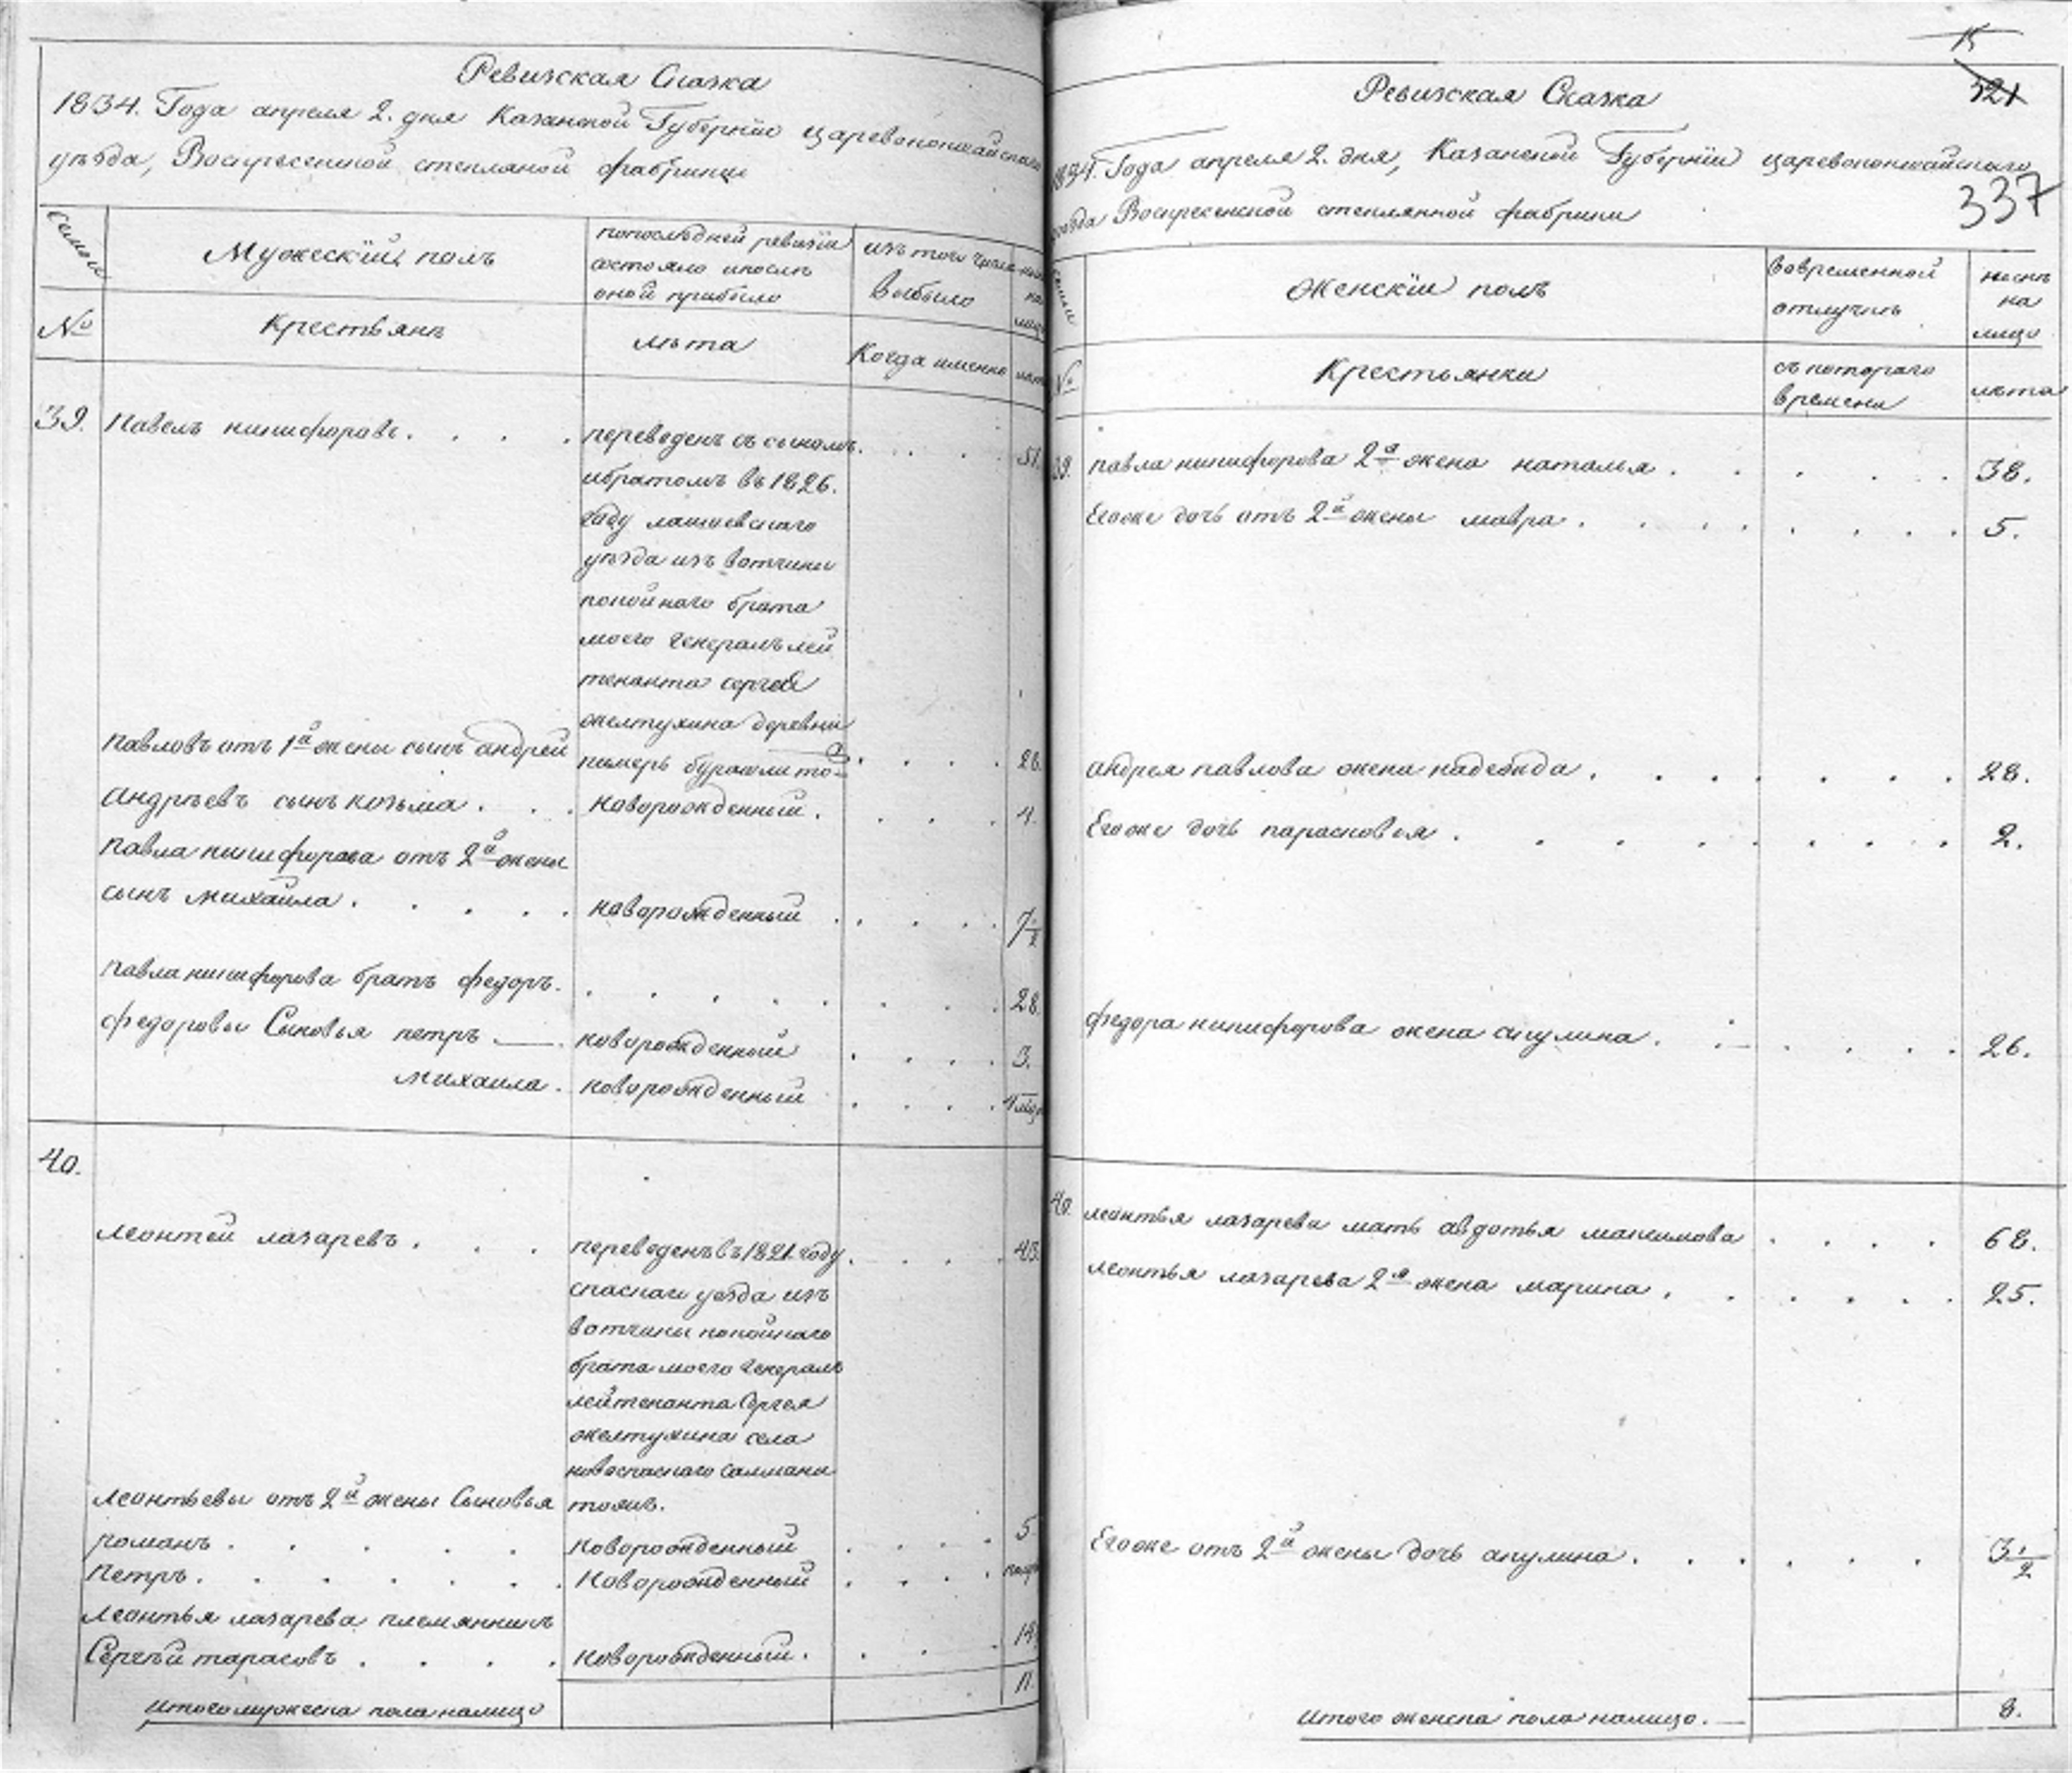 Ревизская Сказка
1834. Года апреля 2. дня Казанской Губернїи царевококшайскаго
уѣзда, Воскресенской стекляной фабрики
Семьи
Мужескїй полъ
попослѣдней ревизїи
состояло ипослѣ
оной прибыло
изъ того числа
выбыло
№
Крестьянъ
лѣта
Когда именно
39. Павелъ никифоровъ. . . . . переведенъ съ сыномъ. . . . 51.
ибратомъ въ 1826.
году лаишевскаго
уѣзда изъ вотчины
покойнаго брата
моего Генералълей
тенанта сергея
желтухина деревни
Павловъ отъ 1й жены сынъ андрей
. . . . 28.
Андрѣевъ сынъ козьма . . . новорожденный . . . . 4.
Павла никифорова отъ 2й жены
сынъ михайла . . . . . новорожденный . . . . . 7 1/2
Павла никифорова братъ федоръ. . . . . . . . . . 28.
федоровы Сыновья петръ — новорожденный . . . . 3.
михаила . новорожденный . . . .
40.
леонтей лазаревъ . . . переведенъ въ 1821. году . . . . 43.
спаскаго уезда изъ
вотчины покойнаго
брата моего Генералъ
лейтенанта Сергея
желтухина села
новоспаскаго
Леонтьевы отъ 2й жены Сыновья
романъ . . . . . Новорожденный . . . . 5.
Петръ . . . . . . . Новорожденный . . . .
Леонтья лазарева племянникъ
Сергѣй тарасовъ . . . . . Новорожденный . . . .
Итого мужеска пола налицо 11.
15
321
Ревизская Сказка
1834. Года апреля 2. дня, Казанской Губернїи царевококшайскаго
уѣзда Воскресенской стеклянной фабрики
337
Семьи
Женскїй полъ
вовременной
отлучкѣ
ныснѣ
на
лицо
№
Крестьянки
съ котораго
времени
лѣта
39. павла никифорова 2я жена наталья . . . . . 38.
Егоже дочь отъ 2й жены мавра . . . . . . . . 5.
андрея павлова жена надежда . . . . . . . 28.
Егоже дочь парасковья . . . . . . . . 2.
федора никифорова жена акулина . . . . . . 26.
40. леонтья лазарева мать авдотья максимова . . . . 68.
леонтья лазарева 2я жена марина . . . . . . 25.
Егоже отъ 2й жены дочь акулина . . . . . . 3 1/2
Итого женска пола налицо. — 8.